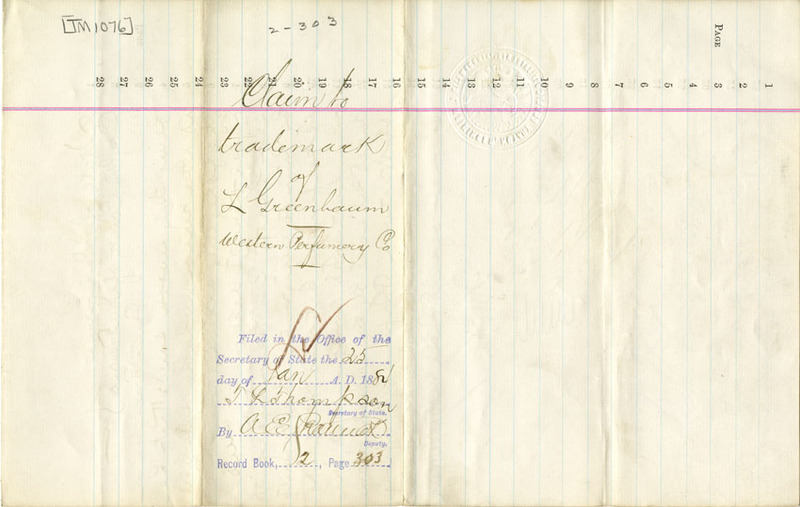 [TM1076]
2-303
PAGE
28 27 26 25 24 23 22 21 20 19 18 17 16 15 14 13 12 11 10 9 8 7 6 5 4 3 2 1
Claim to
trademark
of
L Greenbaum
Western Perfumery Co
Filed in the Office of the
Secretary of State the 25
day of Jan A. D. 188
Thompson
Secretary of State.
By A E
Deputy.
Record Book, 2, Page 303